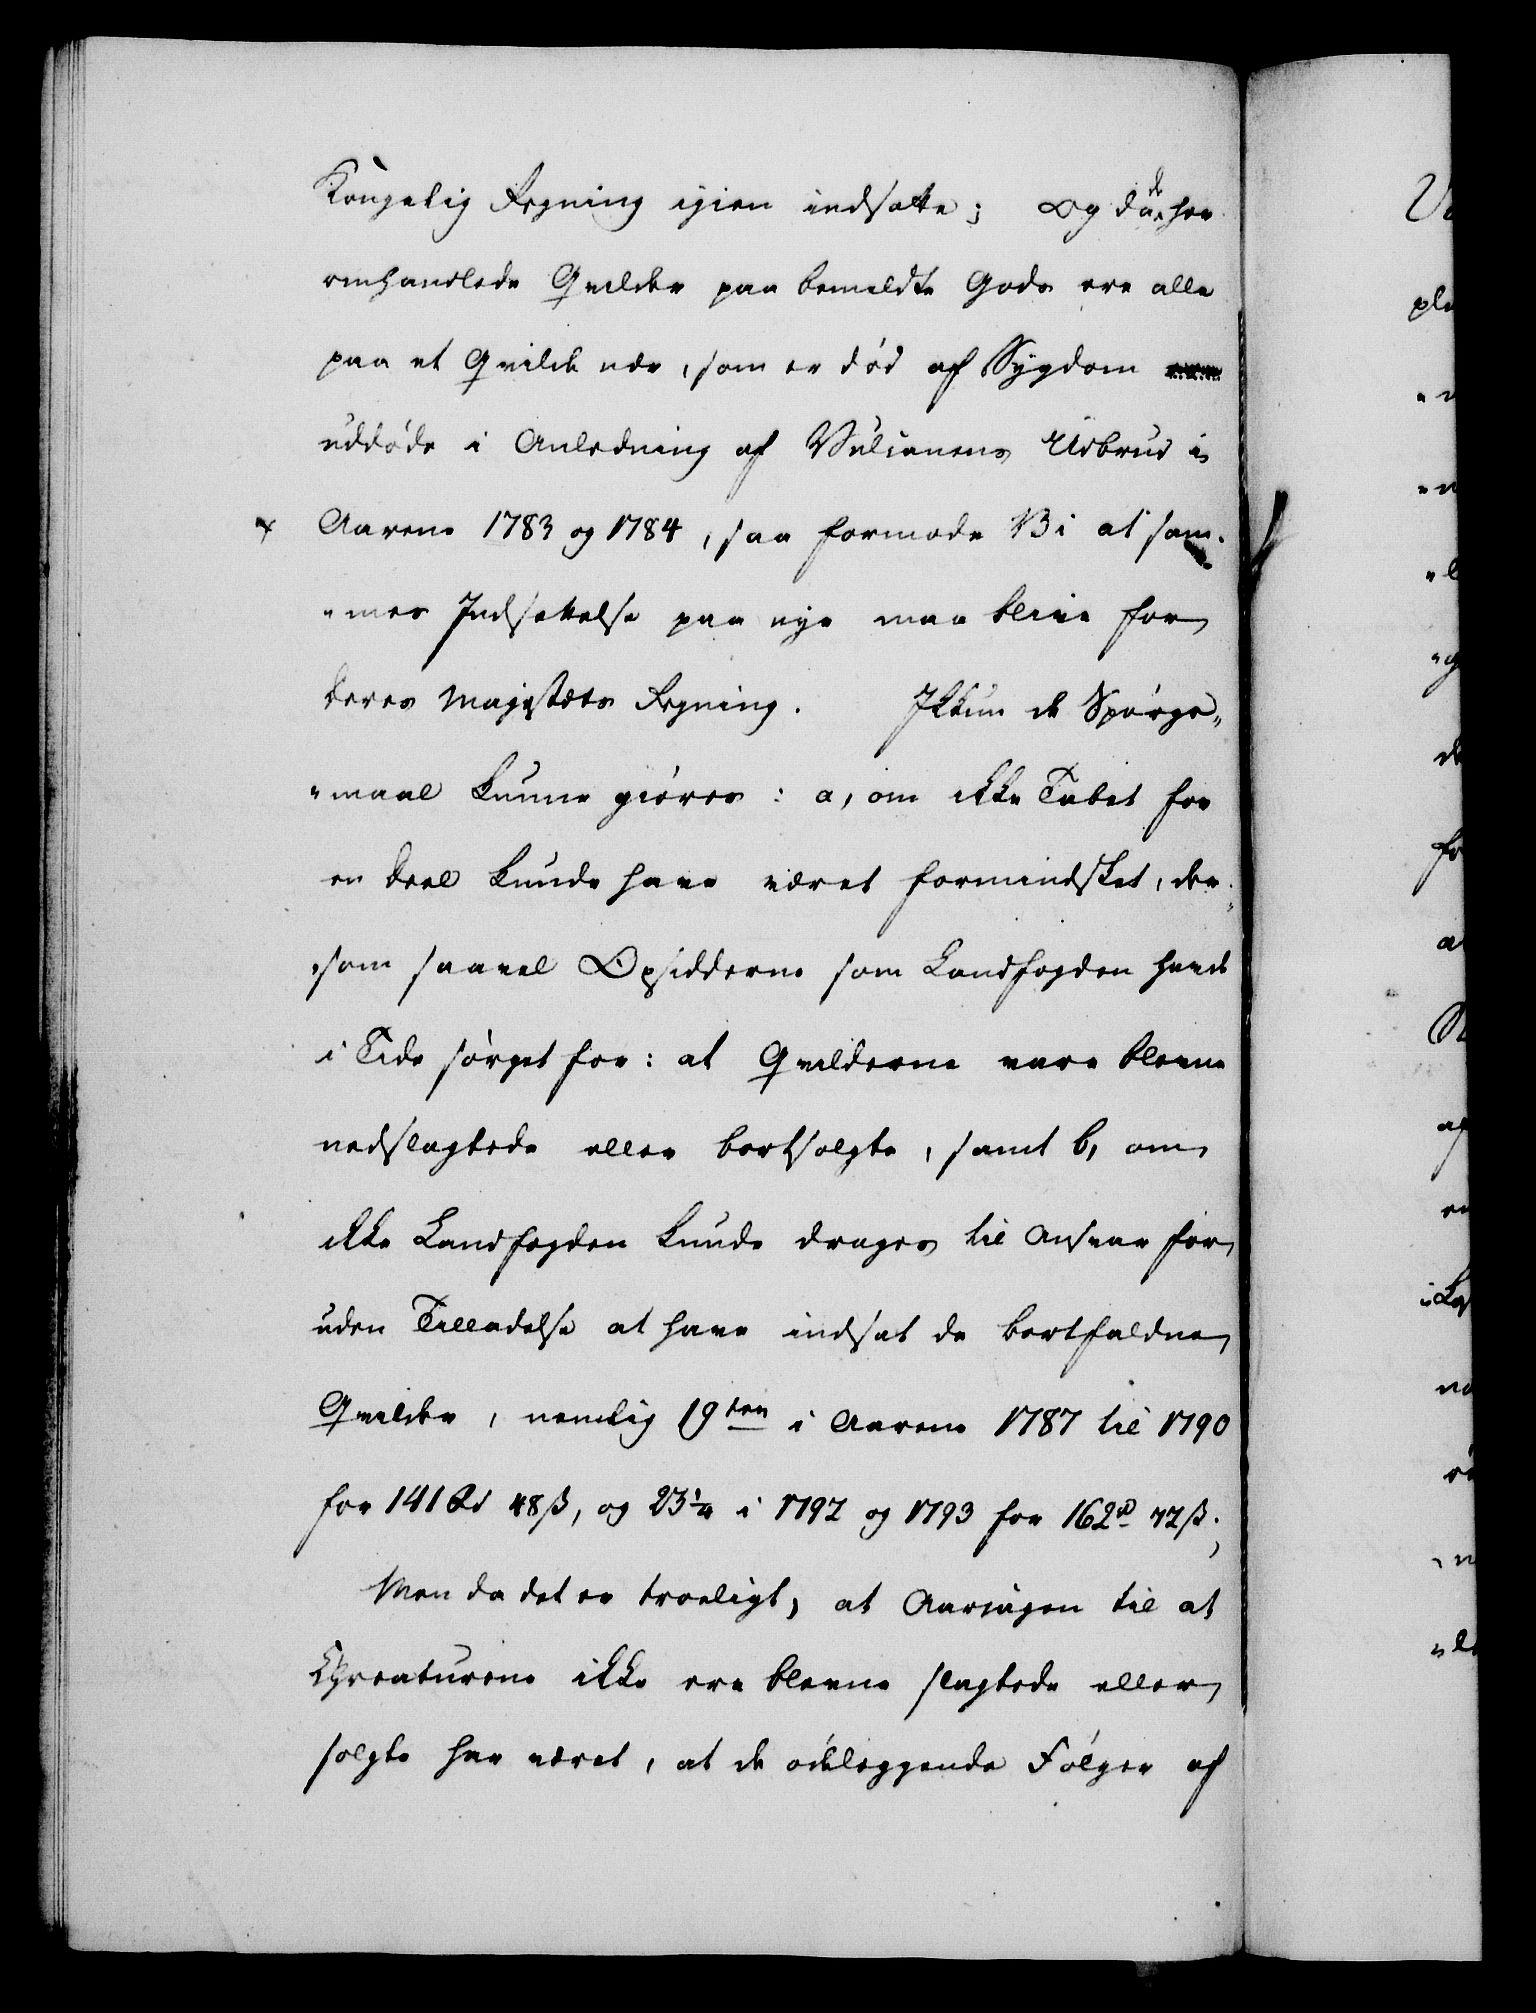 Kongelig Regning igien indsatte; Og da de her
omhandlede Qvilder paa bemeldte Gods ere alle
paa et Qvilde nær, som er død af Sygdom
uddøde i Anledning af Vulcanens Udbrud i
Aarene 1783 og 1784, saa formode Vi at sam-
"mes Indsettelse paa nye maa blive for
deres Majestæts Regning. Ikkun de Spørgs-
"maal kunne giøres: a, om ikke Tabet for
en deel kunde have været formindsket, der-
"som saavel Opsidderne som Landfogden havde
i Tide sørget for: at Qvilderne vare blevne
nedslagtede eller bortsolgte, samt b, om
ikke Landfogden kunde drages til Ansvar for
uden Tilladelse at have indsat de bortfaldne
Qvilder, nemlig 19ten i Aarene 1787 til 1790
for 141 Rd 48 ß, og 23¼ i 1792 og 1793 for 162 rd 72 ß;
Men da det er troeligt, at Aarsagen til at
Creaturene ikke ere blevne slagtede eller
solgte har været, at de ødeleggende Følger af